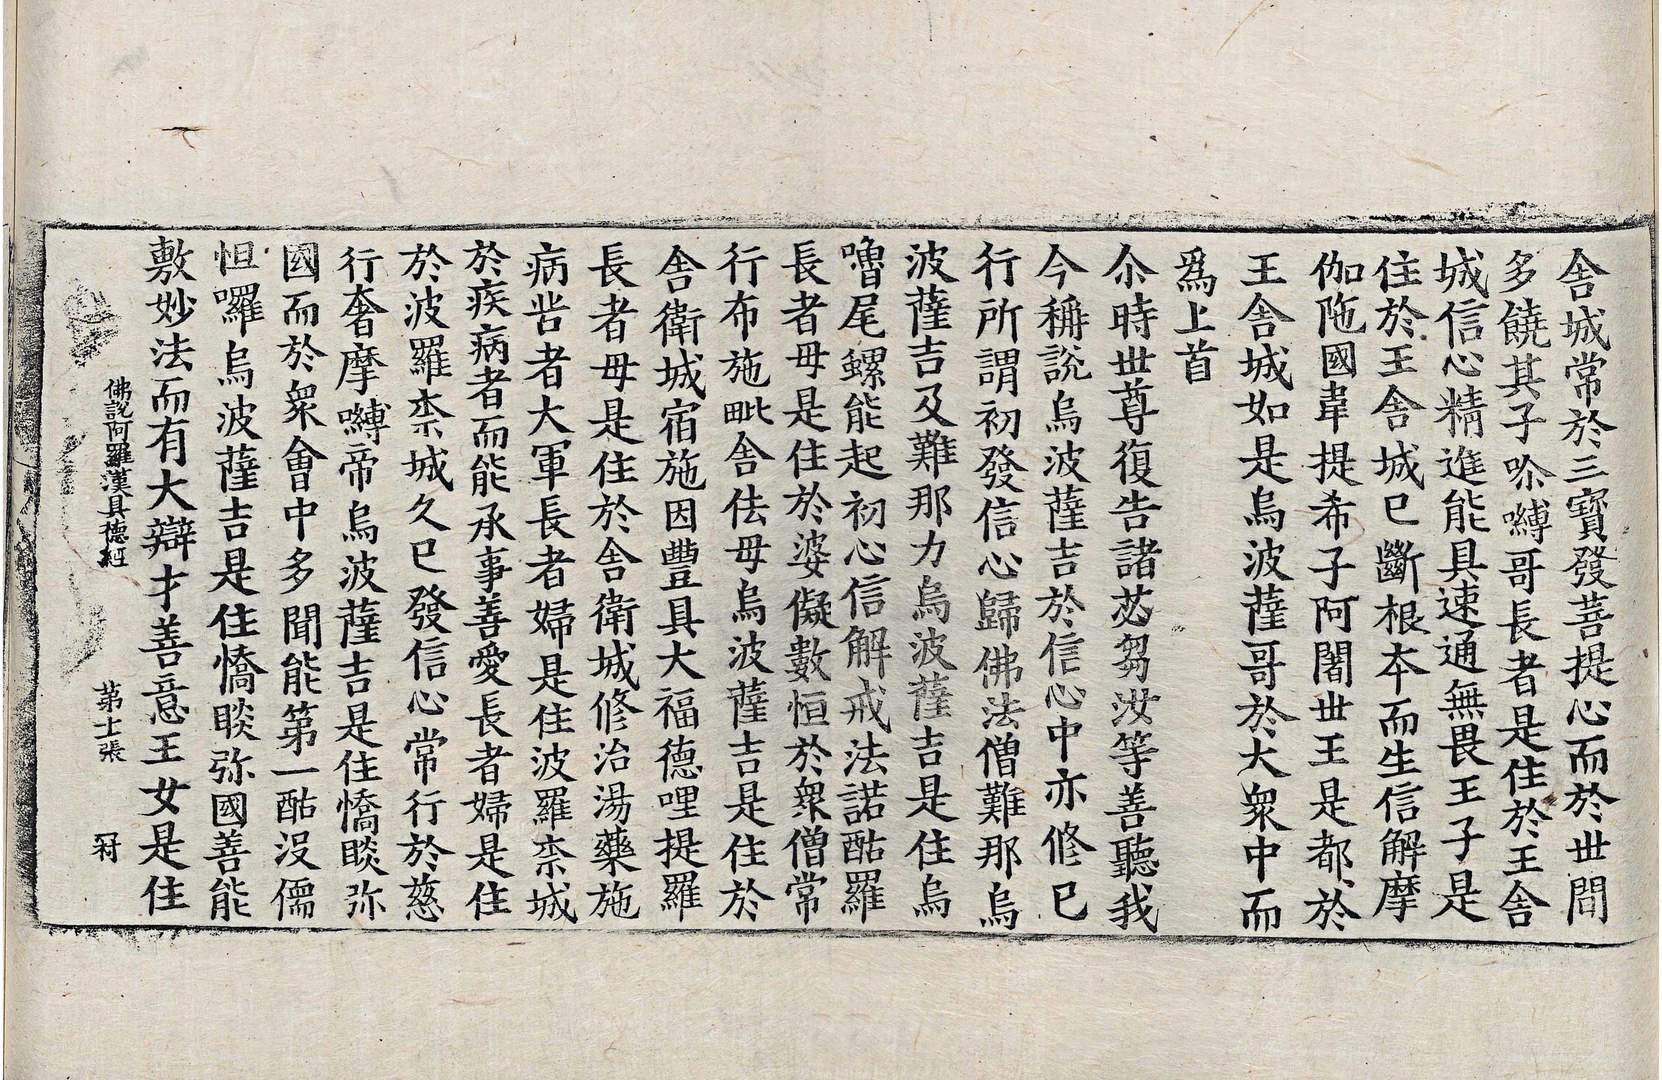 舍城常於三寶發菩提心而於丗間
多饒其子㖿嚩哥長者是住於王舍
城信心精進能具速通無畏王子是
住於王舍城已斷根本而生信解摩
伽陁國韋提希子阿闍丗王是都於
王舍城如是烏波薩哥於大衆中而
爲上首
尒時丗尊復告諸苾芻汝等善聽我
今稱說烏波薩吉於信心中亦修已
行所謂初發信心歸佛法僧難那烏
波薩吉及難那力烏波薩吉是住烏
嚕尾螺能起初心信解戒法諾酤羅
長者母是住於婆儗數恒於衆僧常
行布施毗舍佉母烏波薩吉是住於
舍衛城宿施因豐具大福德哩提羅
長者母是住於舍衛城修治湯藥施
病苦者大軍長者婦是住波羅柰城
於疾病者而能承事善愛長者婦是住
於波羅柰城久已發信心常行於慈
行奢摩嚩帝烏波薩吉是住憍睒弥
國而於衆會中多聞能第一酤没儒
怛囉烏波薩吉是住憍睒弥國善能
敷妙法而有大辯才善意王女是住
佛說阿羅漢具德經 第士張 𠕋